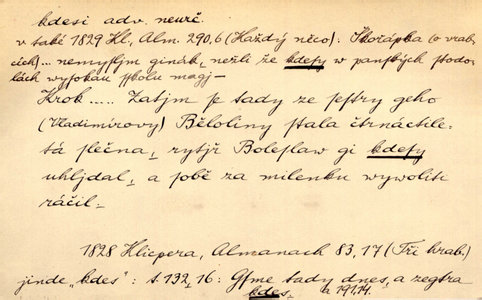 kdesi adv. neurč.
v také 1829 Kl, Alm. 290,6 (Každý něco): Škořápka (o vrab-
cích)... nemyslym ginák, nežli že kdesy w panských stodo-
lách wysokau sskolu magj —
Krok ..... Zatjm se tady ze sestry geho
(Vladimírovy) Běloliny stala čtrnáctile-
tá slečna, rytjř Boleslaw gi kdesy
uhljdal, a sobě za milenku wywoliti
ráčil.
1828 Klicpera, Almanach 83,17 (Tři hrab.)
jinde "kdes": s. 132,16: Gsme tady dnes, a zegtra
kdes, a 191,14.